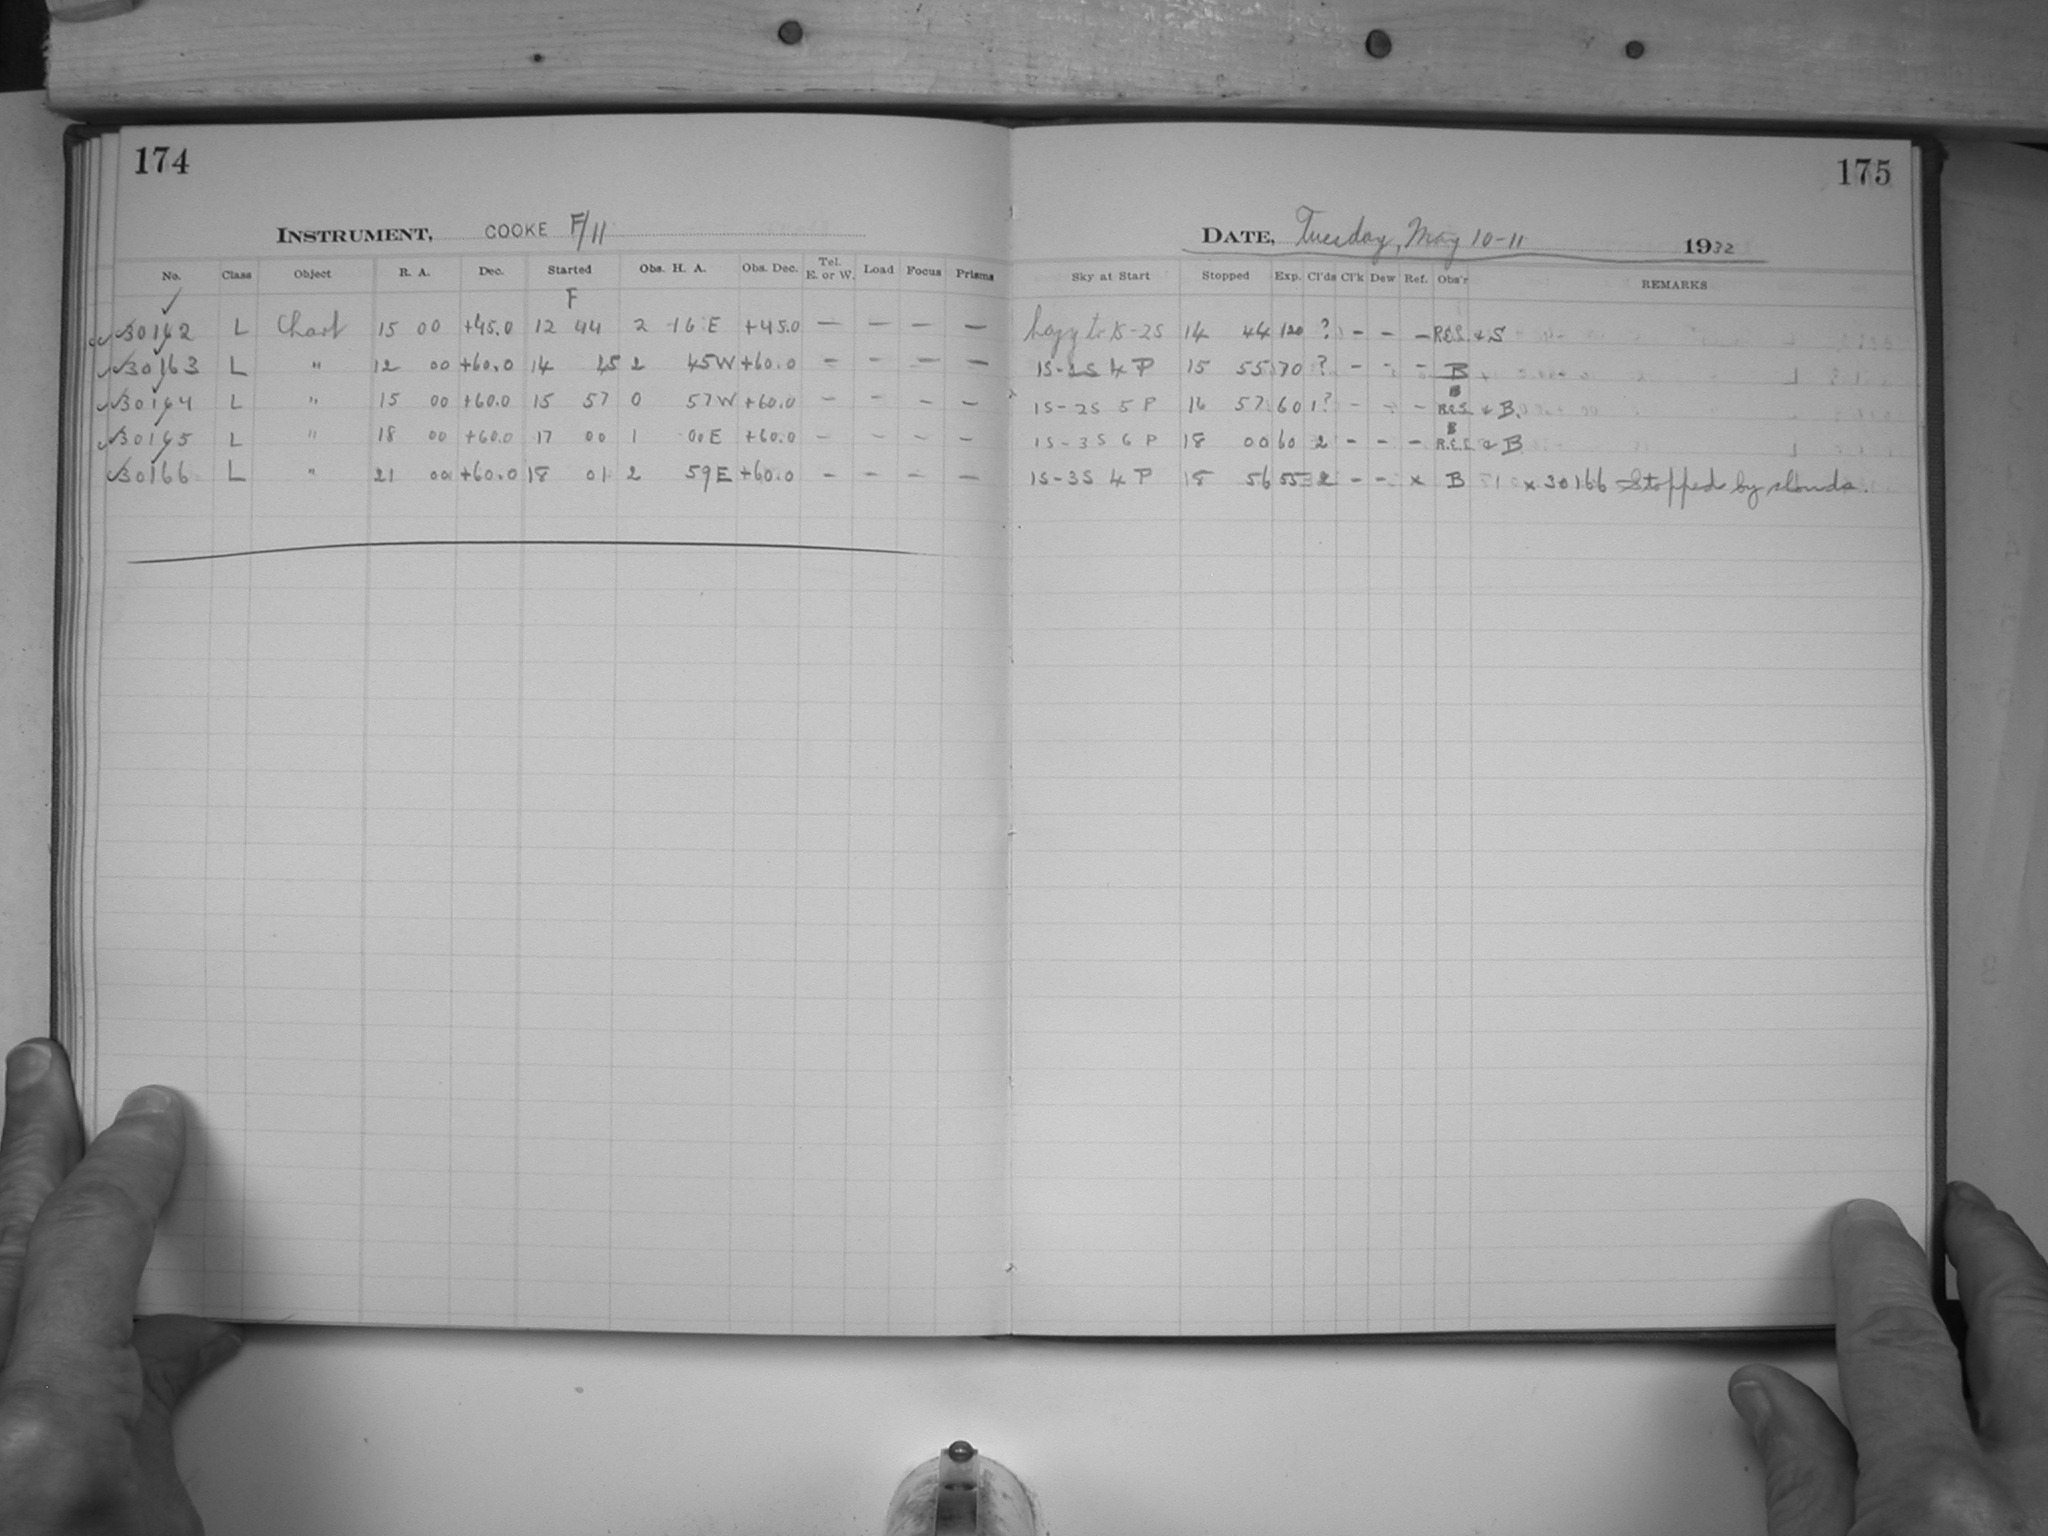 174
INSTRUMENT, COOKE F/11
No. Class Object R. A. Dec. Started Obs. H. A. Obs. Dec. Tel. E. or W. Load Focus Prisms
F
30162 L Chart 15 00 +45.0 12 44 2 16 E +45.0 — — — —
30163 L " 12 00 +60.0 14 45 2 45 W +60.0 — — — —
30164 L " 15 00 +60.0 15 57 0 57 W +60.0 — — — —
30165 L " 18 00 +60.0 17 00 1 00 E +60.0 — — — —
30166 L " 21 00 +60.0 18 01 2 59 E +60.0 — — — —
175
DATE, Tuesday, May 10-11 1932
Sky at Start Stopped Exp. Cl'ds Cl'k Dew Ref. Obs'r REMARKS
hazy to 1S-2S 14 44 120 ? — — — R.E.S. & S
1S-2S 4 P 15 55 70 ? — — — B
B
1S-2S 5 P 16 57 60 1? — — — R.E.S. & B.
B
1S-3S 6 P 18 00 60 2 — — — R.E.S. & B
1S-3S 4 P 18 56 55 2 — — x B x 30166 Stopped by clouds.